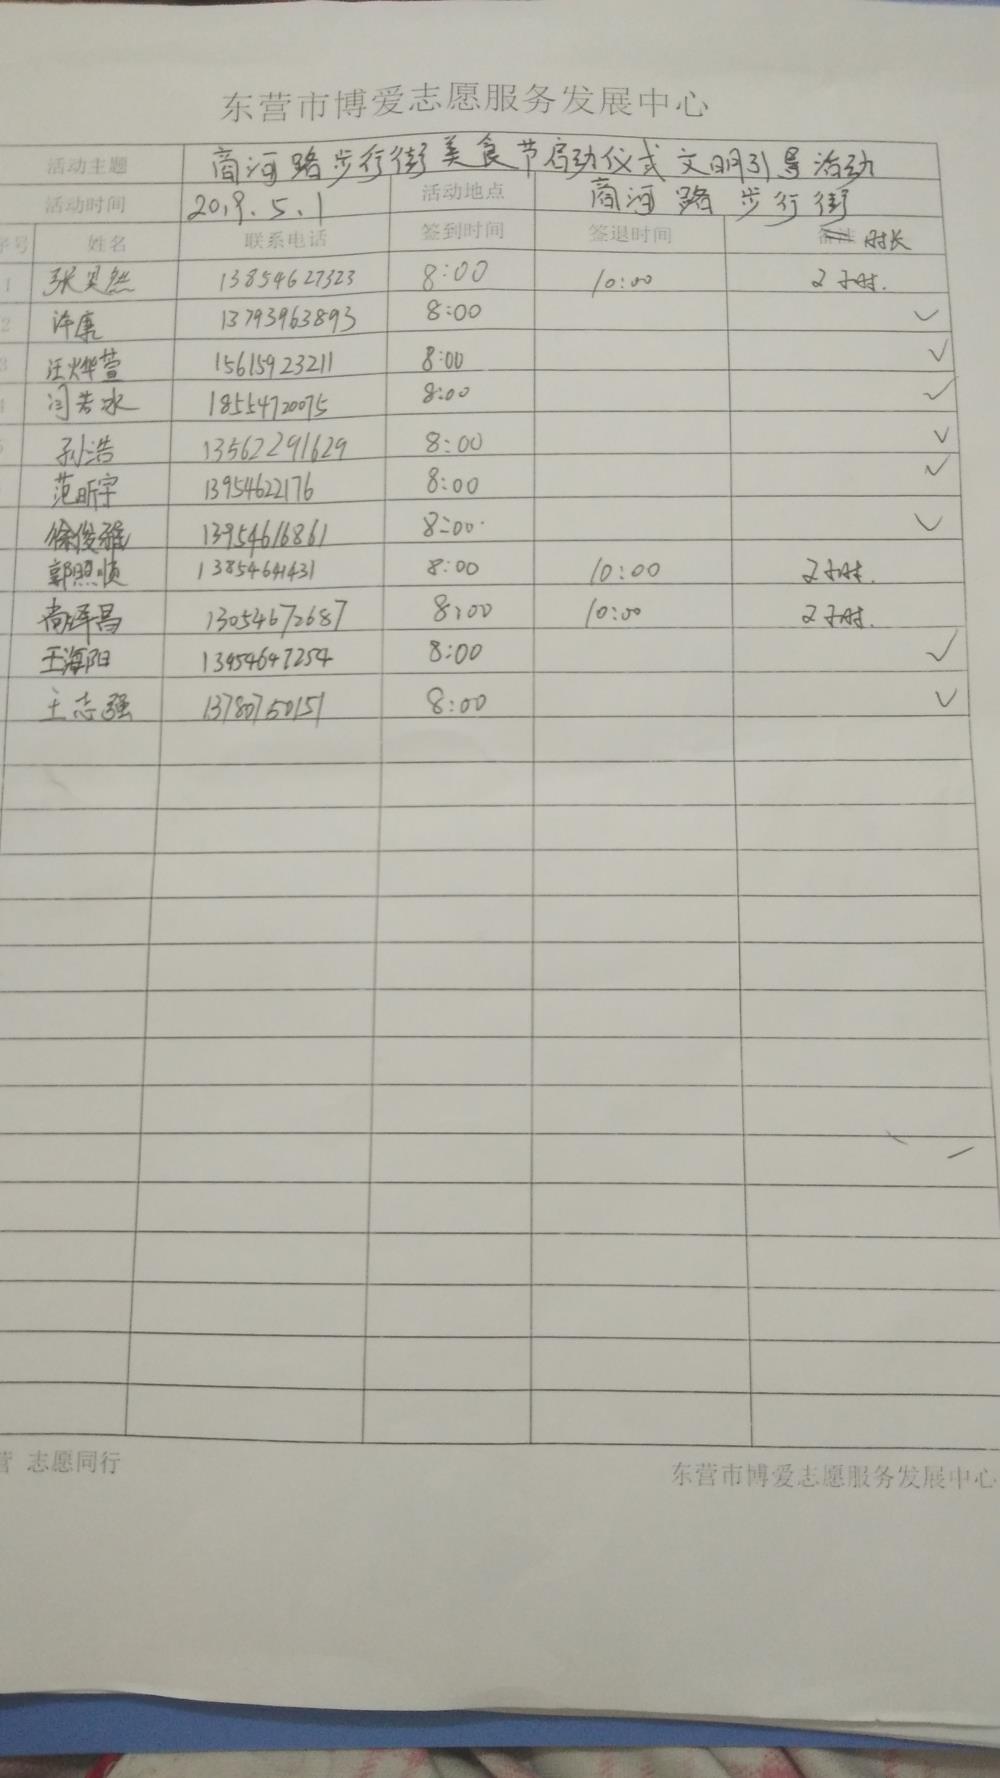 东营市博爱志愿服务发展中心
活动主题 商河路步行街美食节启动仪式文明引导活动
活动时间 2019.5.1 活动地点 商河路步行街
序号 姓名 联系电话 签到时间 签退时间 备注 时长
1 张昊然 13854627323 8:00 10:00 2小时.
2 许康 13793963893 8:00 ✓
3 汪烨萱 15615923211 8:00 ✓
4 闫若冰 18554720075 8:00 ✓
5 孙浩 13562291629 8:00 ✓
范昕宇 13954622176 8:00 ✓
徐俊雅 13954616861 8:00 ✓
郭照顺 13854641431 8:00 10:00 2小时.
尚泽昌 13054672687 8:00 10:00 2小时.
王海阳 13954647254 8:00 ✓
王志强 13780750151 8:00 ✓
营 志愿同行
东营市博爱志愿服务发展中心